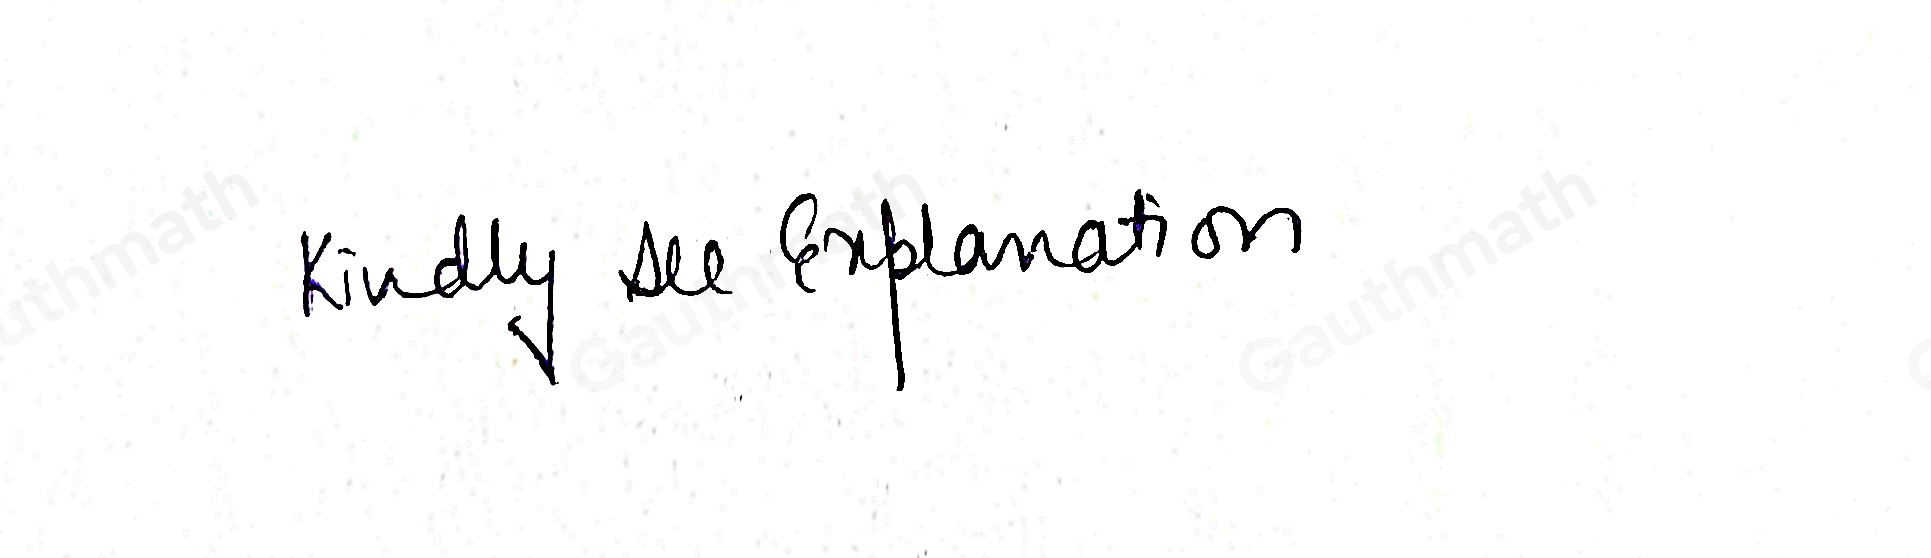 Kindly see Explanation
Gauthmath
Gauthmath